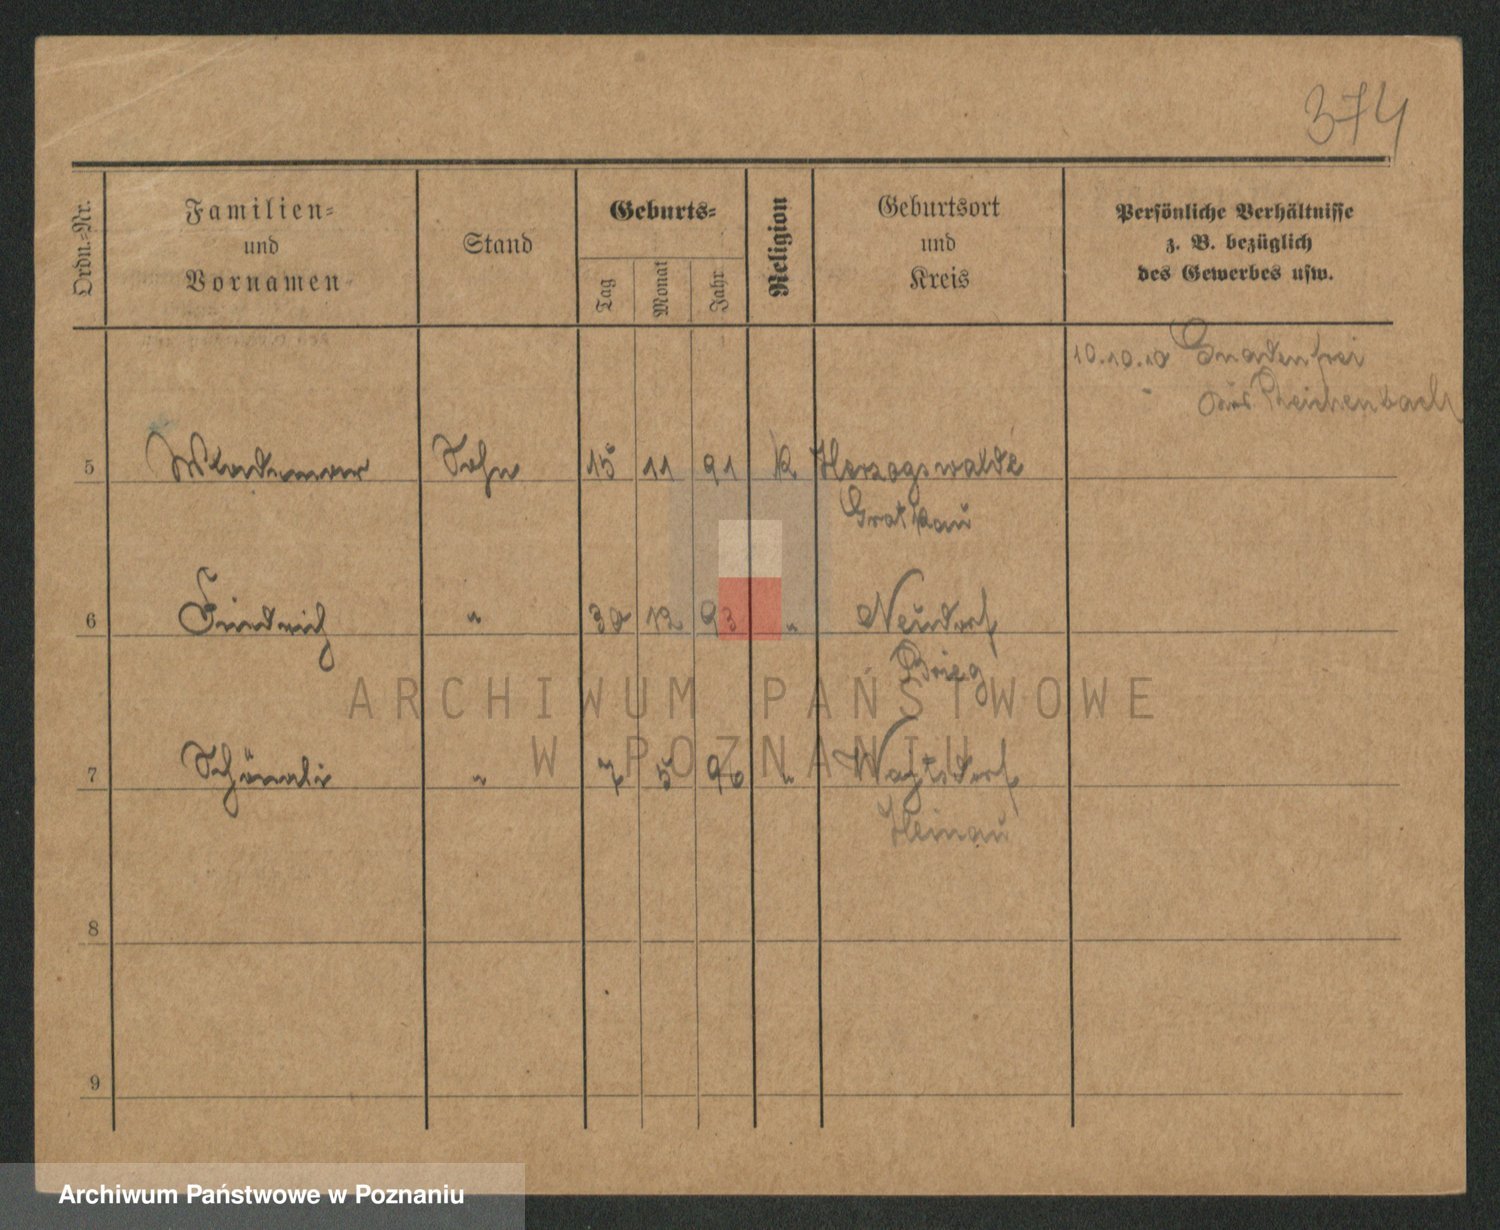 374
Ordn.-Nr.
Familien-
und
Vornamen
Stand
Geburts-
Tag
Monat
Jahr
Religion
Geburtsort
und
Kreis
Persönliche Verhältnisse
z. B. bezüglich
des Gewerbes usw.
10.10.10 Gnadenfrei
Reichenbach
5 Sohn 15 11 91 k Herzogswalde
Grottkau
6 Friedrich " 30 12 93 " Neudorf
Brieg
7 " 7 5 96 "
8
9
ARCHIWUM PAŃSTWOWE
W POZNANIU
Archiwum Państwowe w Poznaniu